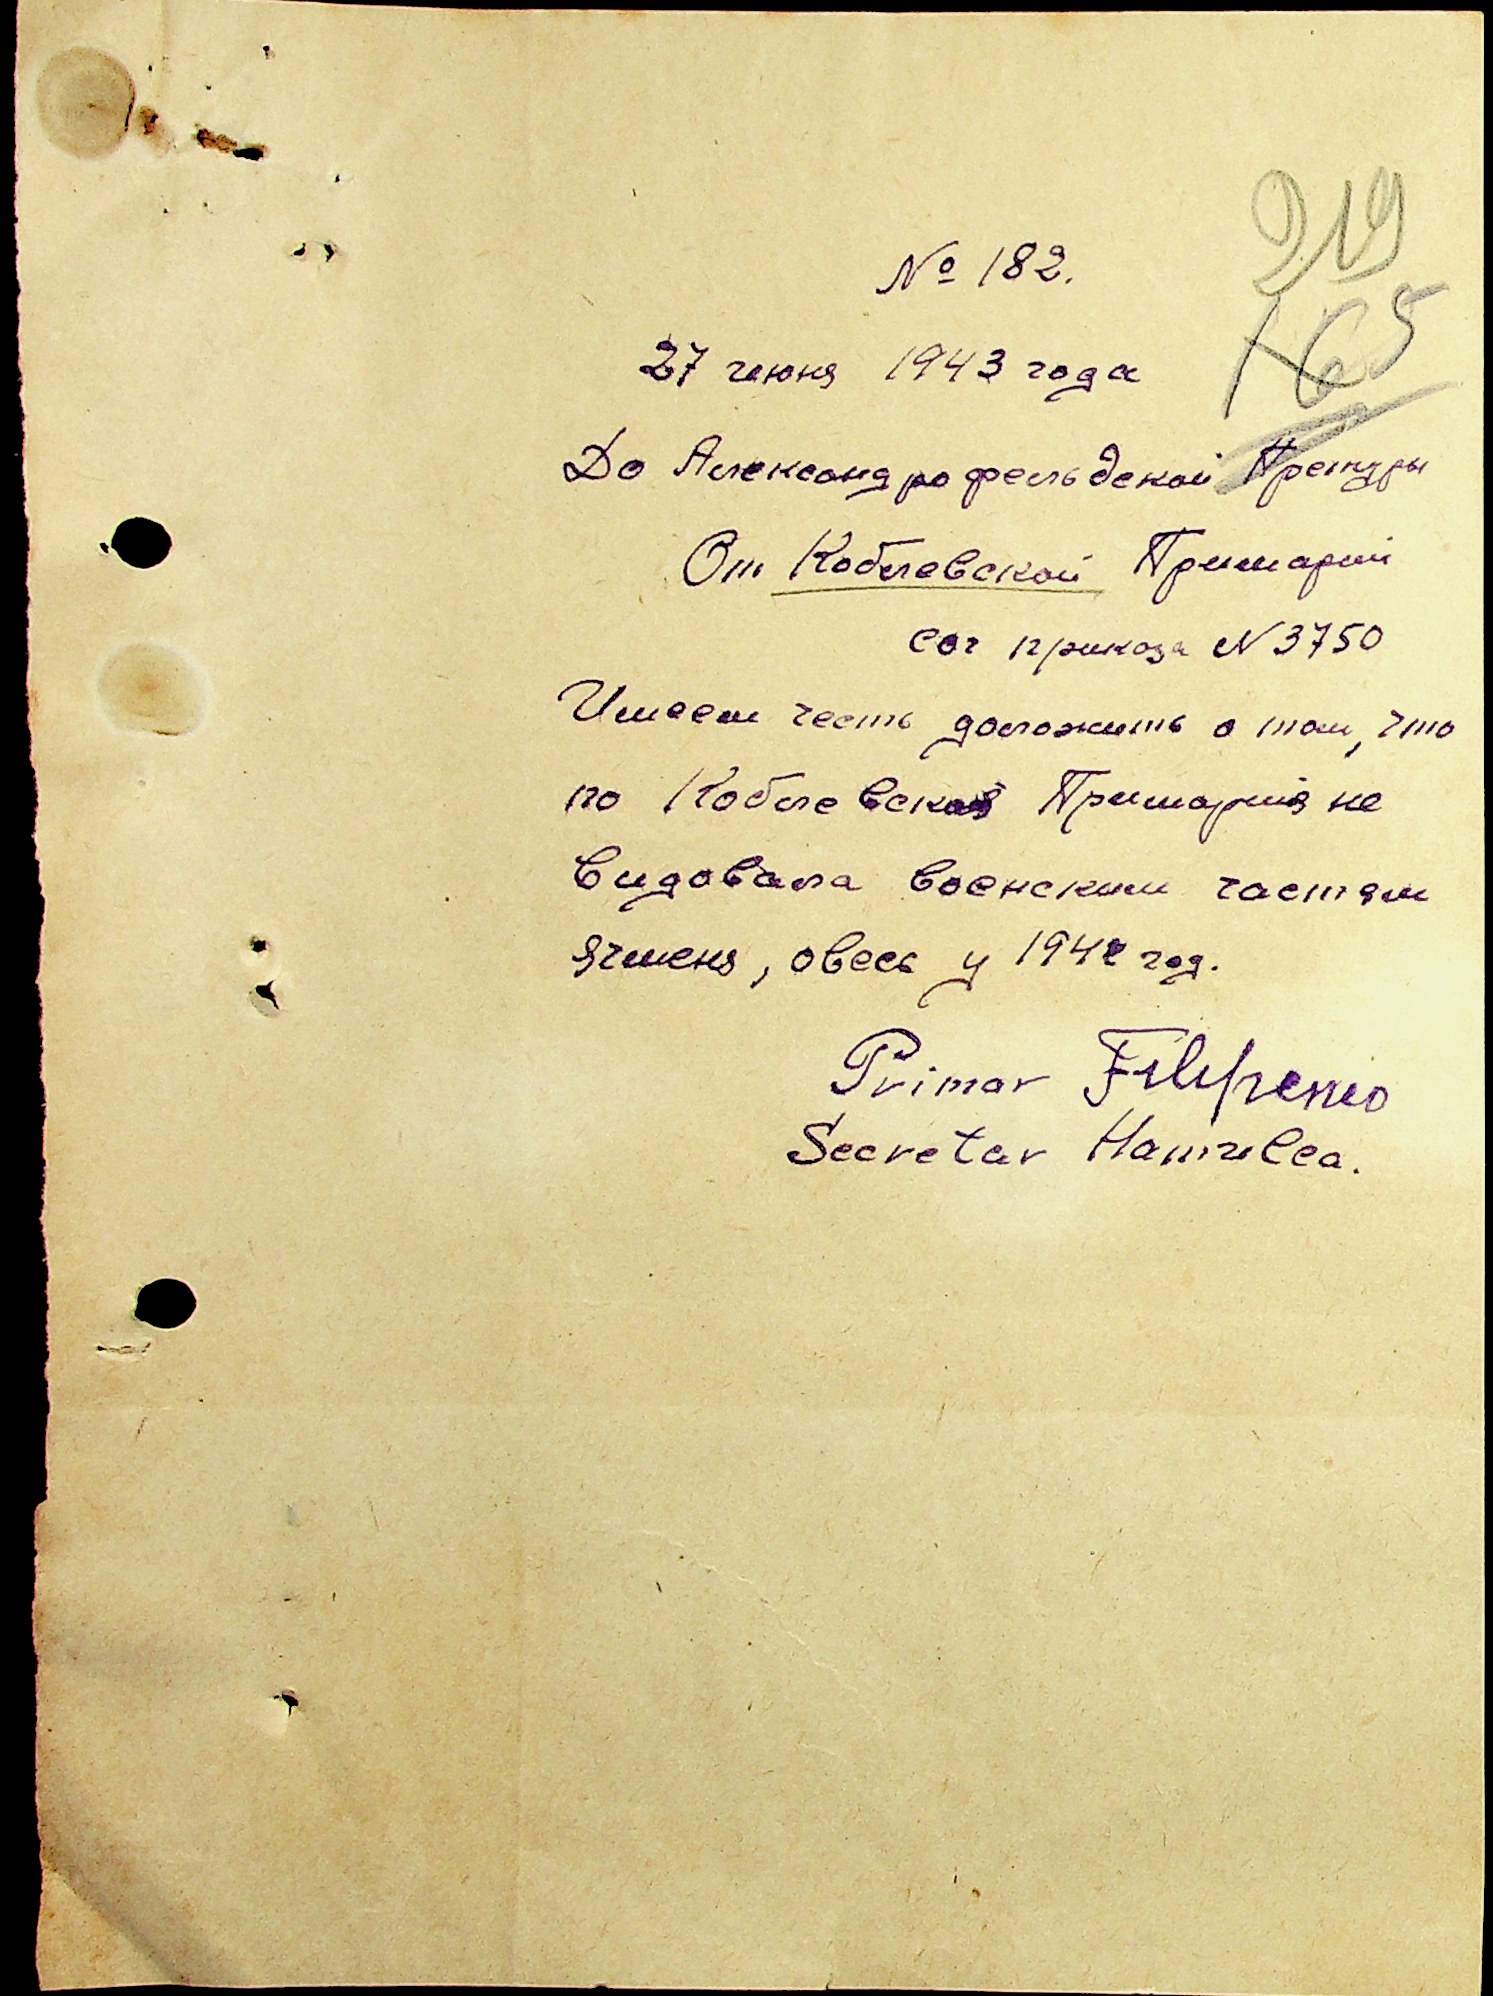 219
165
№ 182.
27 июня 1943 года
До Александрофельдской Претуры
От Коблевской Примарии
сог приказа N 3750
Имеем честь доложить о том, что
по Коблевская Примария не
видовала военским частям
ячменя, овесь у 1942 год.
Primar Filipenco
Secretar